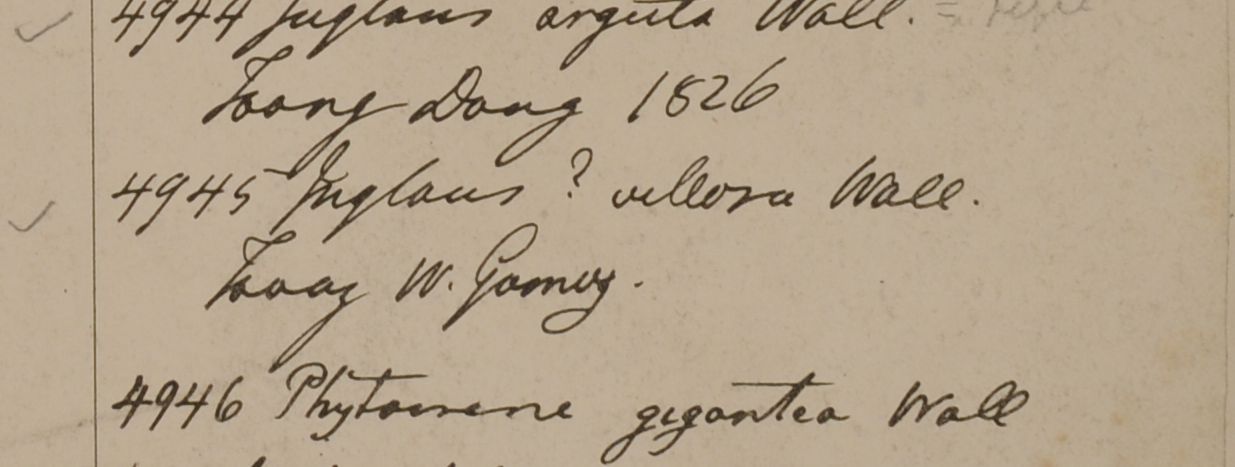 4944 Juglans arguta Wall. =
Taong Dong 1826
4945 Juglans ? villosa Wall.
Taong W. Gomez.
4946 Phytocrene gigantea Wall